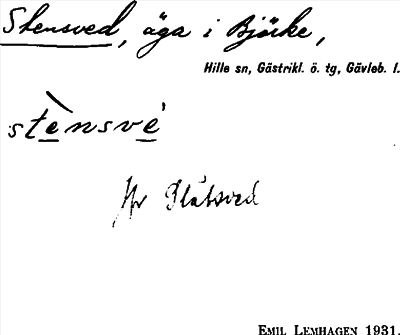 Stensved, äga i Björke,
Hille sn, Gästrikl. ö. tg, Gävleb. l.
stènsvé
Jfr Slätsved
EMIL LEMHAGEN 1931.